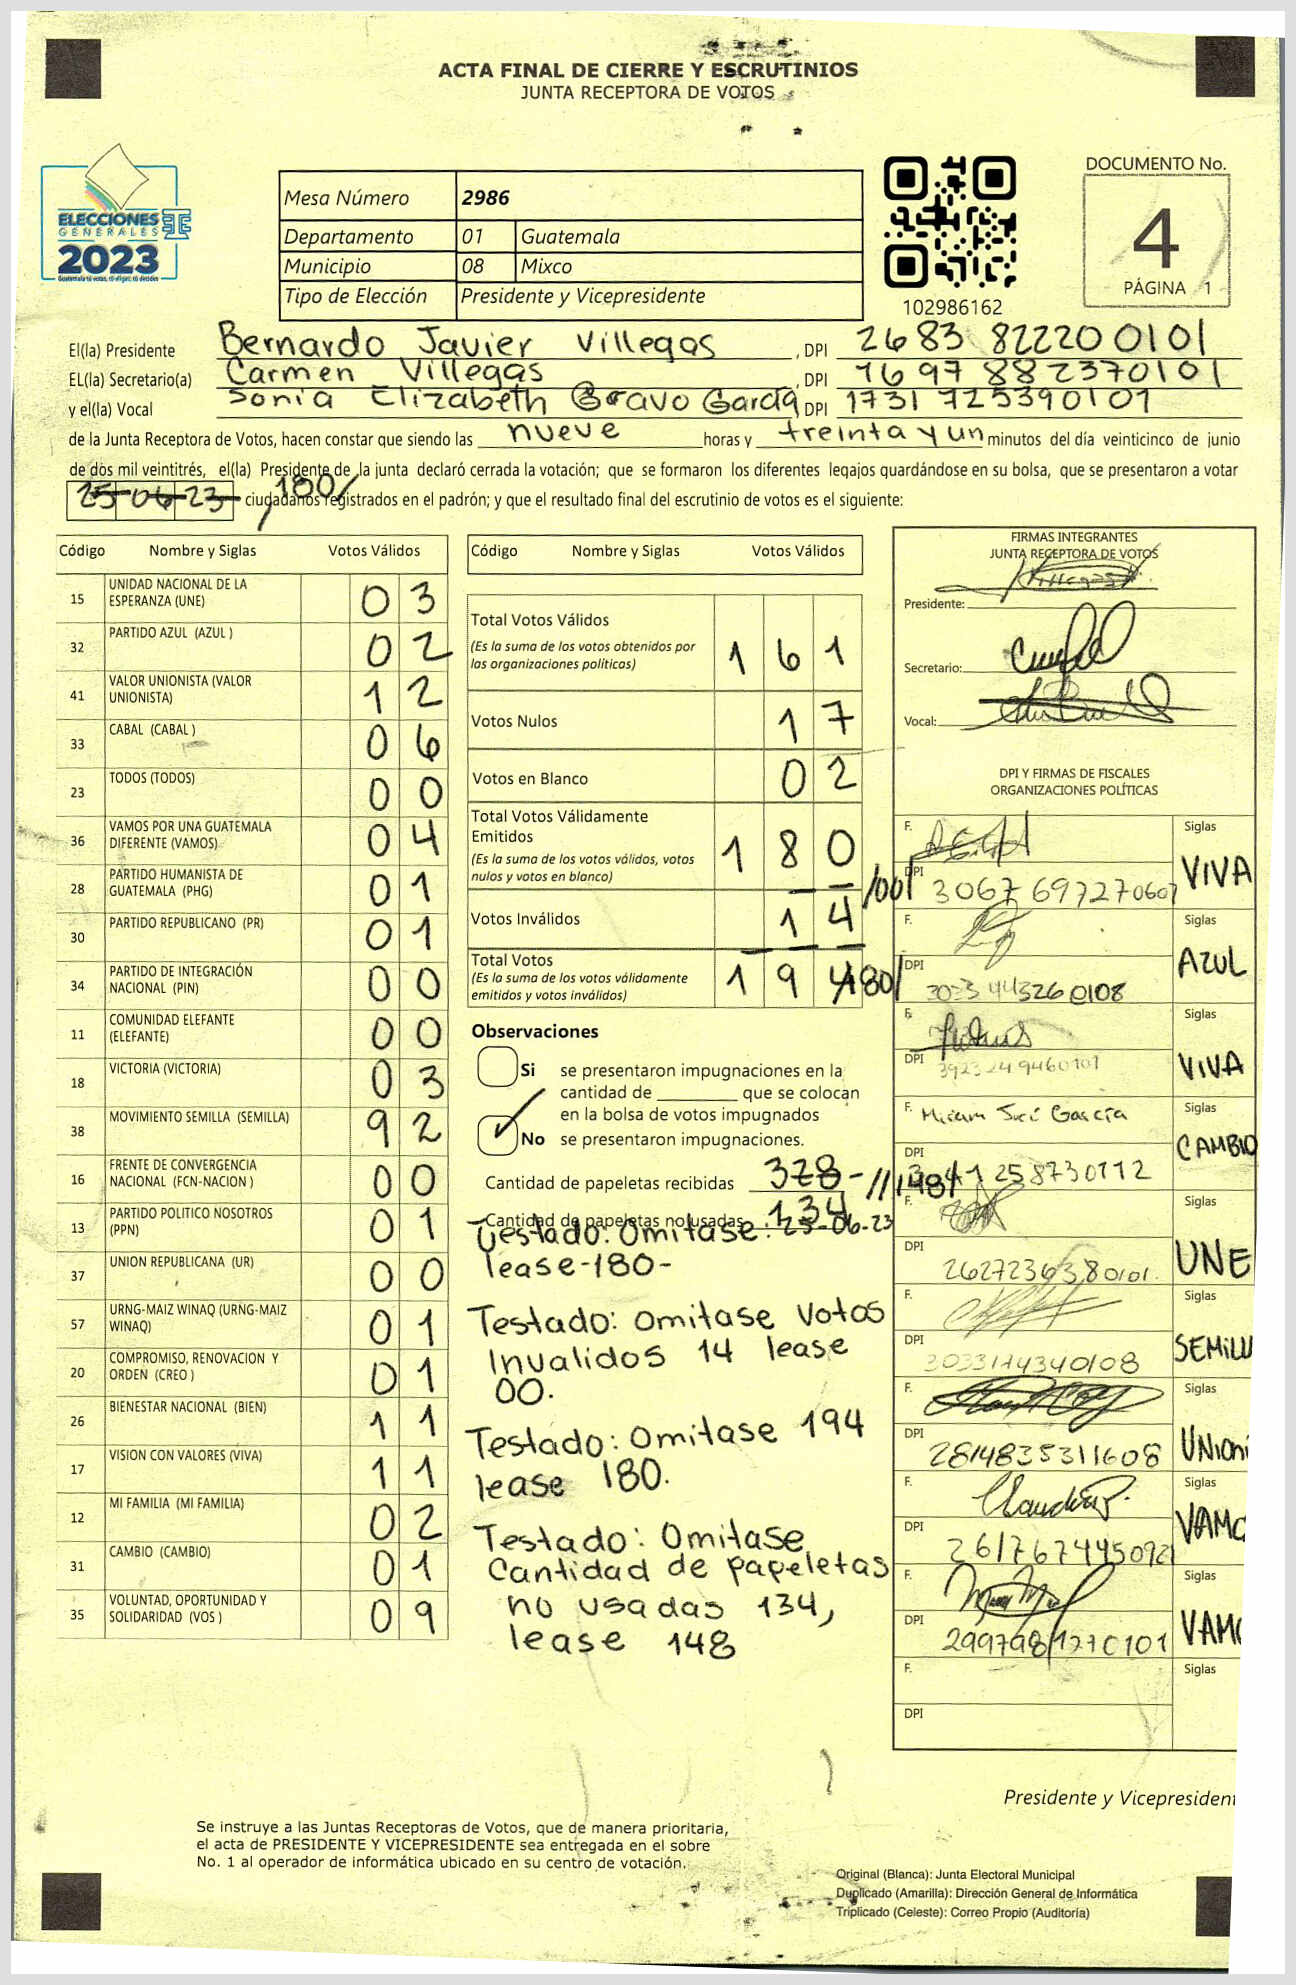 ACTA FINAL DE CIERRE Y ESCRUTINIOS
JUNTA RECEPTORA DE VOTOS
ELECCIONES
GENERALES
2023
Mesa Número 2986
Departamento 01 Guatemala
Municipio 08 Mixco
Tipo de Elección Presidente y Vicepresidente
102986162
DOCUMENTO No.
4
PÁGINA 1
El(la) Presidente Bernardo Javier Villegas , DPI 2683 82220 0101
EL(la) Secretario(a) Carmen Villegas , DPI 1697 882370101
y el(la) Vocal Sonia Elizabeth Bravo García , DPI 1731 725390101
de la Junta Receptora de Votos, hacen constar que siendo las nueve horas y treinta y un minutos del día veinticinco de junio
de dos mil veintitrés, el(la) Presidente de la junta declaró cerrada la votación; que se formaron los diferentes legajos quardándose en su bolsa, que se presentaron a votar
25-06-23 /180/ ciudadanos registrados en el padrón; y que el resultado final del escrutinio de votos es el siguiente:
Código Nombre y Siglas Votos Válidos
15 UNIDAD NACIONAL DE LA ESPERANZA (UNE) 0 3
32 PARTIDO AZUL (AZUL ) 0 2
41 VALOR UNIONISTA (VALOR UNIONISTA) 1 2
33 CABAL (CABAL ) 0 6
23 TODOS (TODOS) 0 0
36 VAMOS POR UNA GUATEMALA DIFERENTE (VAMOS) 0 4
28 PARTIDO HUMANISTA DE GUATEMALA (PHG) 0 1
30 PARTIDO REPUBLICANO (PR) 0 1
34 PARTIDO DE INTEGRACIÓN NACIONAL (PIN) 0 0
11 COMUNIDAD ELEFANTE (ELEFANTE) 0 0
18 VICTORIA (VICTORIA) 0 3
38 MOVIMIENTO SEMILLA (SEMILLA) 9 2
16 FRENTE DE CONVERGENCIA NACIONAL (FCN-NACION ) 0 0
13 PARTIDO POLITICO NOSOTROS (PPN) 0 1
37 UNION REPUBLICANA (UR) 0 0
57 URNG-MAIZ WINAQ (URNG-MAIZ WINAQ) 0 1
20 COMPROMISO, RENOVACION Y ORDEN (CREO ) 0 1
26 BIENESTAR NACIONAL (BIEN) 1 1
17 VISION CON VALORES (VIVA) 1 1
12 MI FAMILIA (MI FAMILIA) 0 2
31 CAMBIO (CAMBIO) 0 1
35 VOLUNTAD, OPORTUNIDAD Y SOLIDARIDAD (VOS ) 0 9
Código Nombre y Siglas Votos Válidos
Total Votos Válidos 1 6 1
(Es la suma de los votos obtenidos por
las organizaciones políticas)
Votos Nulos 1 7
Votos en Blanco 0 2
Total Votos Válidamente
Emitidos 1 8 0
(Es la suma de los votos válidos, votos
nulos y votos en blanco)
Votos Inválidos 1 4 /00/
Total Votos 1 9 4 /180/
(Es la suma de los votos válidamente
emitidos y votos inválidos)
Observaciones
Si se presentaron impugnaciones en la
cantidad de ________ que se colocan
en la bolsa de votos impugnados
No se presentaron impugnaciones.
Cantidad de papeletas recibidas 328
Cantidad de papeletas no usadas 134 /148/
Testado: Omitase: 25-06-23
lease-180-
Testado: Omitase Votos
Invalidos 14 lease
00.
Testado: Omitase 194
lease 180.
Testado: Omitase
Cantidad de papeletas
no usadas 134,
lease 148
FIRMAS INTEGRANTES
JUNTA RECEPTORA DE VOTOS
Presidente:
Secretario:
Vocal:
DPI Y FIRMAS DE FISCALES
ORGANIZACIONES POLÍTICAS
F. Siglas
DPI 3067 697270607 VIVA
F. Siglas
DPI 3023 443260108 AZUL
F. Siglas
DPI VIVA
F. Siglas
DPI CAMBIO
F. Siglas
DPI 2627236380101. UNE
F. Siglas
DPI 3033174340108 SEMILL
F. Siglas
DPI 2814835311608 UNioni
F. Siglas
DPI VAMO
F. Siglas
DPI VAMO
F. Siglas
DPI
Presidente y Vicepresident
Se instruye a las Juntas Receptoras de Votos, que de manera prioritaria,
el acta de PRESIDENTE Y VICEPRESIDENTE sea entregada en el sobre
No. 1 al operador de informática ubicado en su centro de votación.
Original (Blanca): Junta Electoral Municipal
Duplicado (Amarilla): Dirección General de Informática
Triplicado (Celeste): Correo Propio (Auditoría)